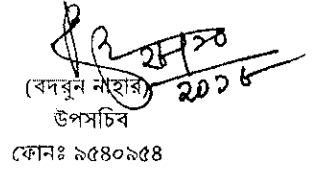 ২৮|১০
২০১৮
(বদরুন নাহার)
উপসচিব
ফোনঃ ৯৫৪০৯৫৪